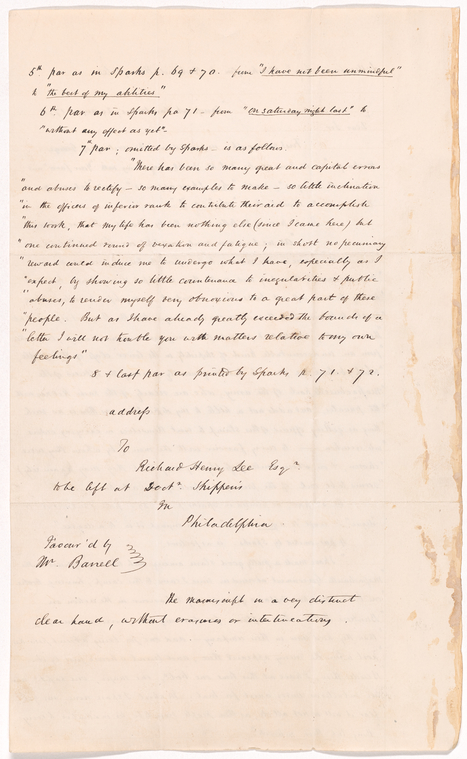 5th par as in Sparks p. 69 & 70. from "I have not been unmindful"
to "the best of my abilities"
6th par as in Sparks pa 71 - from "on saturday night last" to
"without any effect as yet"
7th par; omitted by Sparks - is as follows.
"There has been so many great and capital errors
"and abuses to rectify - so many examples to make - so little inclination
"in the officers of inferior rank to contribute their aid to accomplish
"this work, that my life has been nothing else (since I came here) but
"one continued round of vexation and fatigue; in short no pecuniary
"reward could induce me to undergo what I have, especially as I
"expect, by showing so little countenance to irregularities & public
"abuses, to render myself very obnoxious to a great part of these
"people. But as I have already greatly exceeded the bounds of a
"letter I will not trouble you with matters relative to my own
feelings"
8 & last par as printed by Sparks p. 71. & 72.
address
To
Richard Henry Lee Esqr.
to be left at Doctr. Shippen's
In
Philadelphia
Favour'd by
Mr. Barrell
The manuscript in a very distinct
clear hand, without erasures or interlineations.